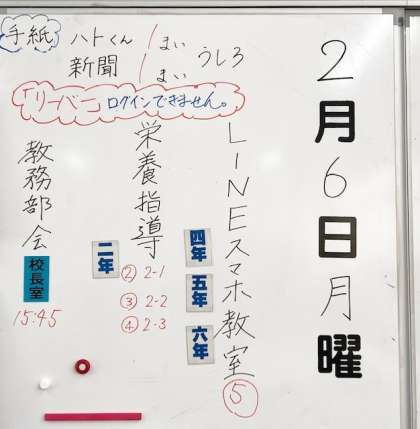 2月6日月曜
LINEスマホ教室
四年
五年
六年
⑤
栄養指導
二年
② 2-1
③ 2-2
④ 2-3
教務部会
校長室
15:45
手紙
ハトくん 1まい
新聞 1まい
うしろ
「リーバー」ログインできません。